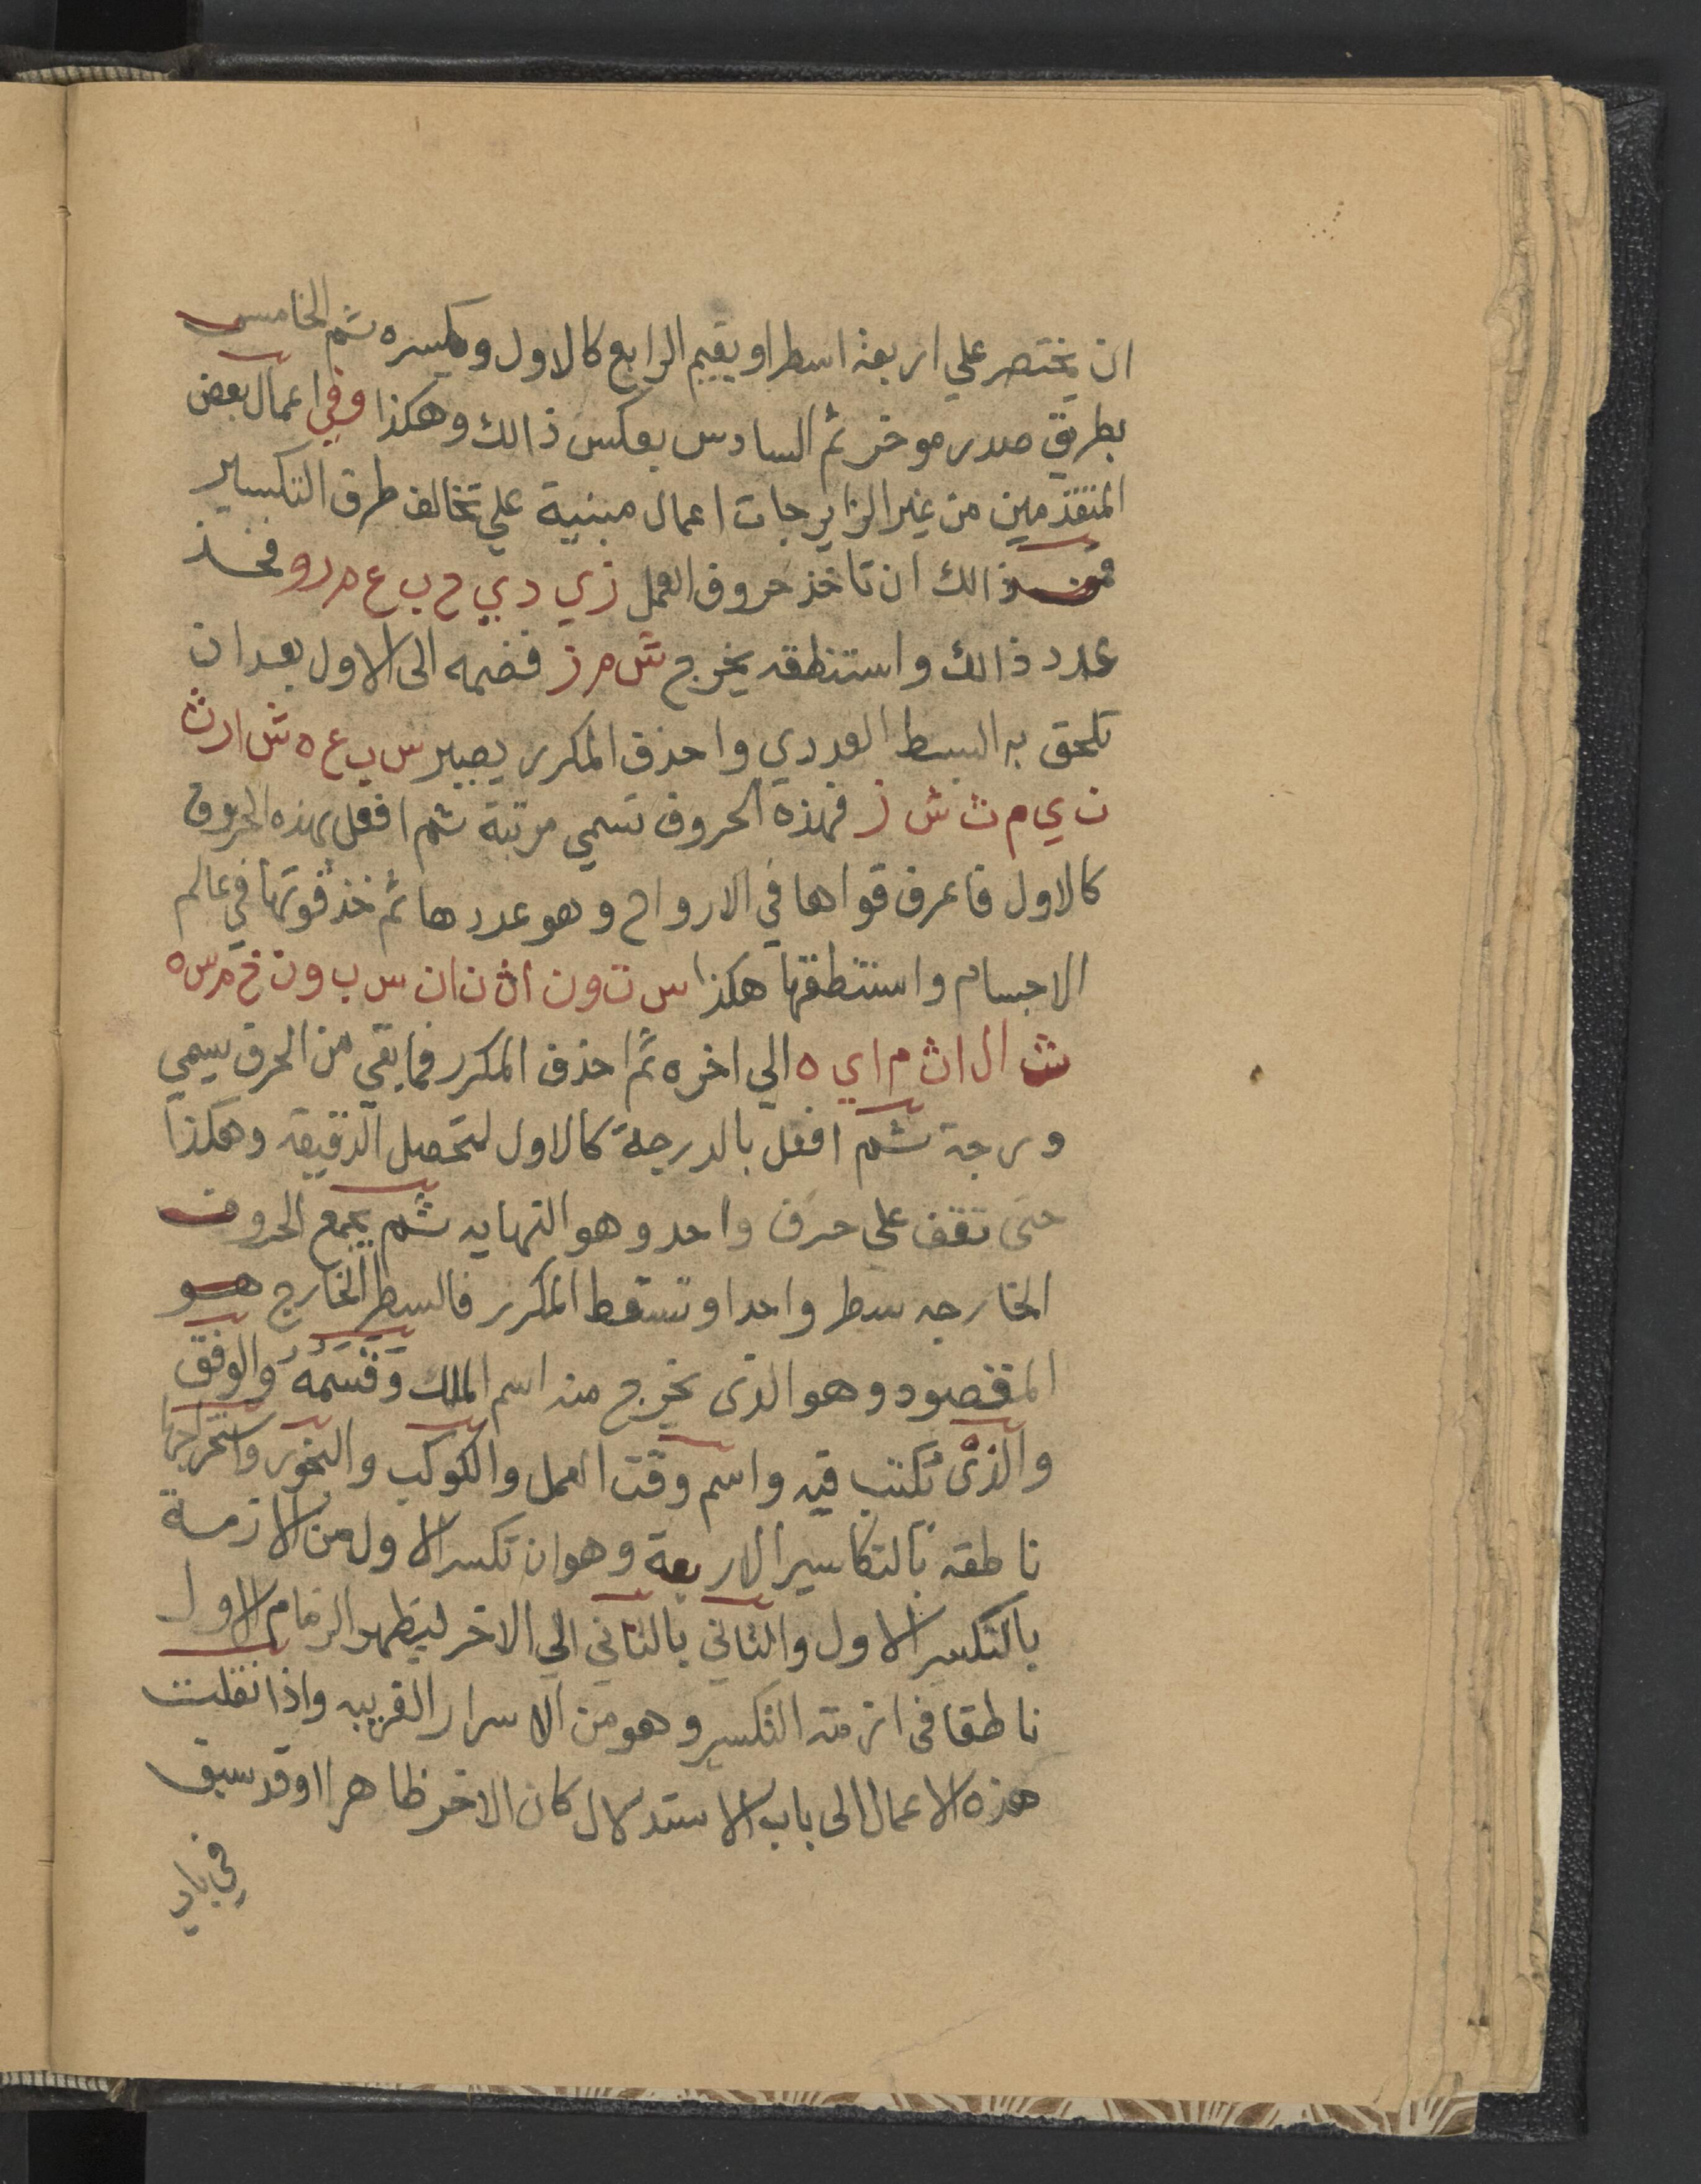 ان يختصر علي اربعة اسطر او يقيم الرابع كالاول ويكسره ثم الخامس
بطريق صدر موخر ثم السادس بعكس ذالك وهكذا وفي اعمال بعض
المتقدمين من غير الزايرجات اعمال مبنية علي تخالف طرق التكسير
فمن ذالك ان تاخذ حروف العمل زي د ي ح ب ع م د و فخذ
عدد ذالك واستنطقه يخرج ش م ز فضمه الى الاول بعد ان
تلحق به البسط العددي واحذف المكرر يصير س ب ع ه ش ا ر ث
ن ي م ت ش ز فهذه الحروف تسمي مرتبة ثم افعل بهذه الحروف
كالاول فاعرف قواها في الارواح وهو عددها ثم خذ قوتها في عالم
الاجسام واستنطقها هكذا س ت و ن ا ث ن ا ن س ب و ن خ م س ه
ث ا ل ا ث م ا ي ه الي اخره ثم احذف المكرر فما بقي من الحرف يسمي
درجة ثم افعل بالدرجة كالاول لتحصل الدقيقه وهكذا
حتى تقف علي حرف واحد وهو النهايه ثم يجمع الحروف
الخارجه سطر واحدا وتسقط المكرر فالسطر الخارج هو
المقصود وهو الذى يخرج منه اسم الملك وقسمه والوفق
والذى تكتب فيه واسم وقت العمل والكوكب والبخور واستخراجها
ناطقه بالتكاسير الاربعة وهو ان تكسر الاول من الازمة
بالتكسير الاول والثاني بالثاني الي الاخر ليظهر الزمام الاول
ناطقا فى ازمته التكسير وهو من الاسرار الغريبه واذا نقلت
هذه الاعمال الى باب الاستدلال كان الاخر ظاهرا وقد سبق
في باب